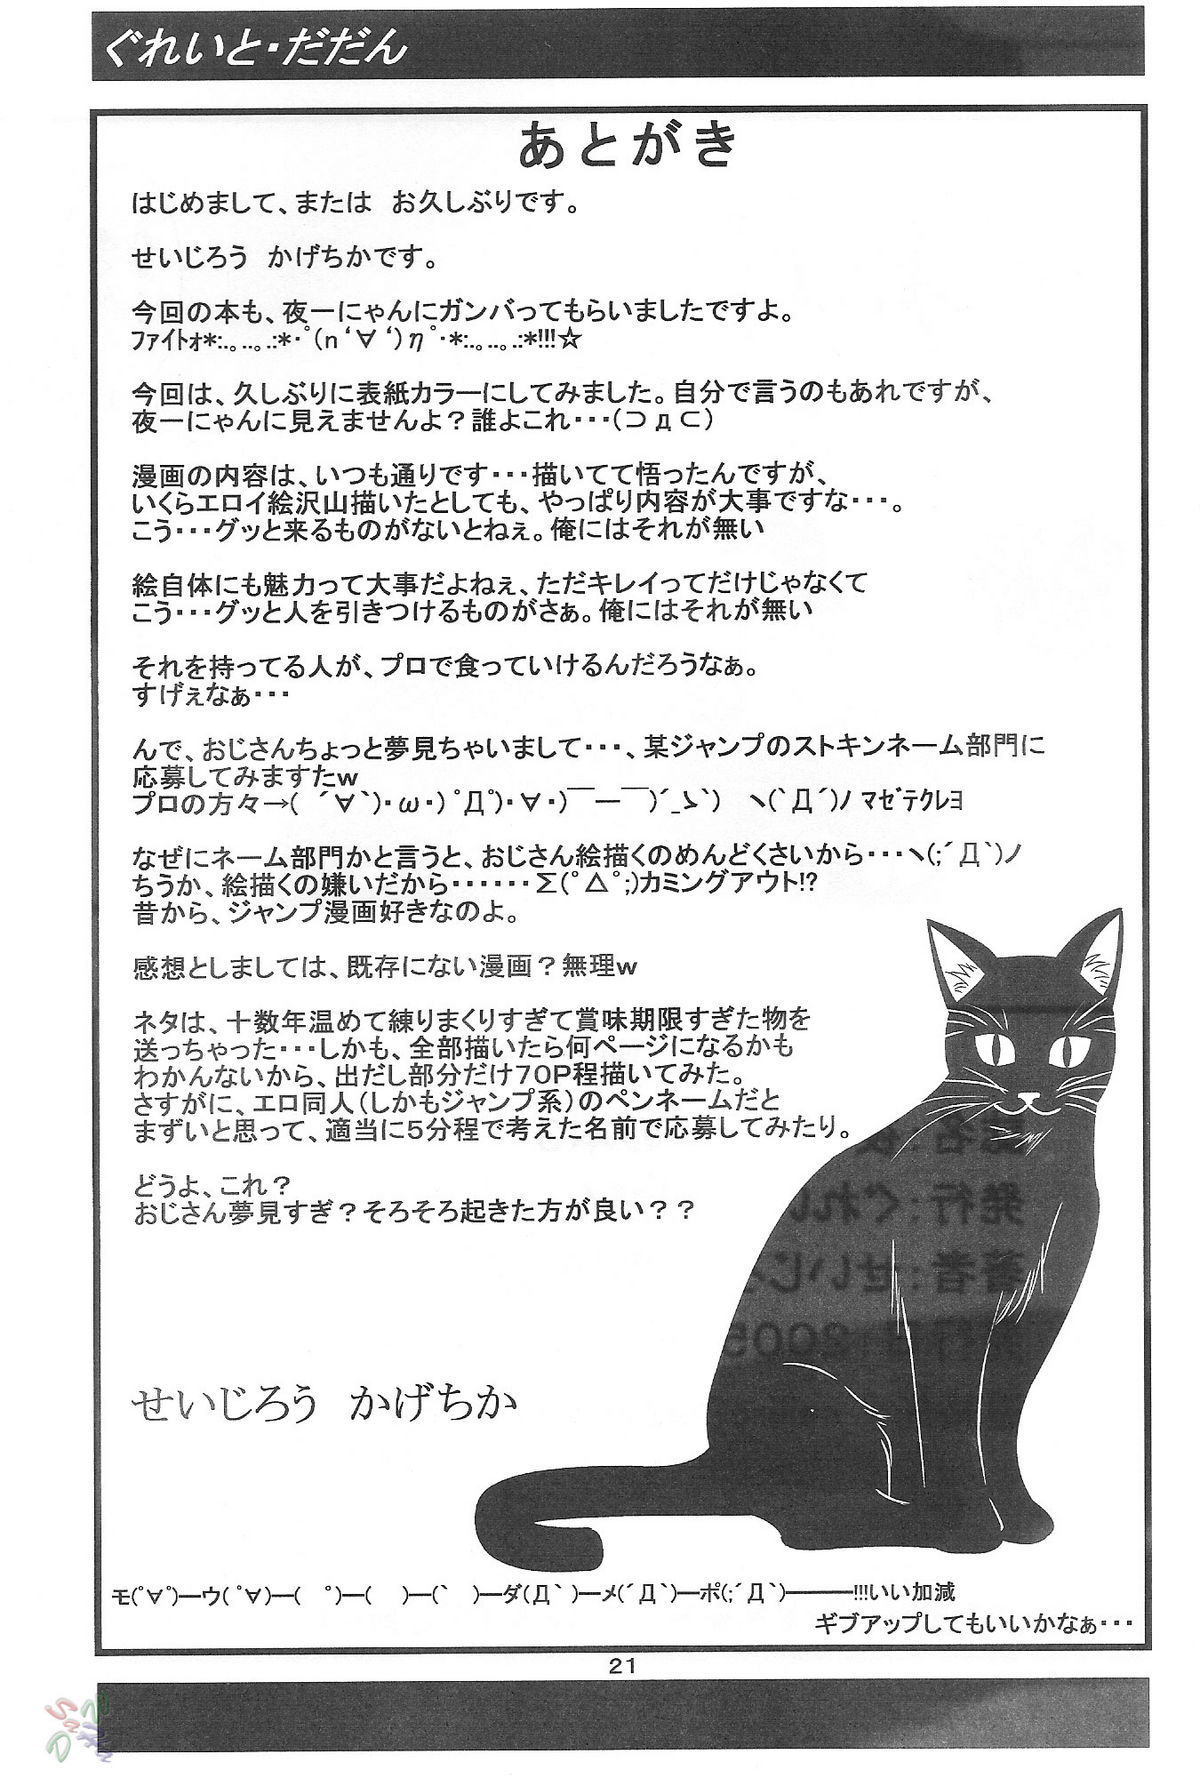 ぐれいと・だだん
あとがき
はじめまして、または　お久しぶりです。
せいじろう　かげちかです。
今回の本も、夜一にゃんにガンバってもらいましたですよ。
ﾌｧｲﾄｫ*:.｡..｡.:*･ﾟ(n‘∀‘)ηﾟ･*:.｡..｡.:*!!!☆
今回は、久しぶりに表紙カラーにしてみました。自分で言うのもあれですが、
夜一にゃんに見えませんよ？誰よこれ・・・(⊃д⊂)
漫画の内容は、いつも通りです・・・描いてて悟ったんですが、
いくらエロイ絵沢山描いたとしても、やっぱり内容が大事ですな・・・。
こう・・・グッと来るものがないとねぇ。俺にはそれが無い
絵自体にも魅力って大事だよねぇ、ただキレイってだけじゃなくて
こう・・・グッと人を引きつけるものがさぁ。俺にはそれが無い
それを持ってる人が、プロで食っていけるんだろうなぁ。
すげぇなぁ・・・
んで、おじさんちょっと夢見ちゃいまして・・・、某ジャンプのストキンネーム部門に
応募してみますたｗ
プロの方々→(　´∀`)･ω･)ﾟДﾟ)･∀･)￣ー￣)´_ゝ`)　ヽ(`Д´)ﾉ ﾏｾﾞﾃｸﾚﾖ
なぜにネーム部門かと言うと、おじさん絵描くのめんどくさいから・・・ヽ(;´Д`)ノ
ちうか、絵描くの嫌いだから・・・・・・Σ(ﾟ△ﾟ;)カミングアウト!?
昔から、ジャンプ漫画好きなのよ。
感想としましては、既存にない漫画？無理ｗ
ネタは、十数年温めて練りまくりすぎて賞味期限すぎた物を
送っちゃった・・・しかも、全部描いたら何ページになるかも
わかんないから、出だし部分だけ70P程描いてみた。
さすがに、エロ同人(しかもジャンプ系)のペンネームだと
まずいと思って、適当に5分程で考えた名前で応募してみたり。
どうよ、これ？
おじさん夢見すぎ？そろそろ起きた方が良い？？
せいじろう　かげちか
モ(ﾟ∀ﾟ)―ウ( ﾟ∀)―(　 ﾟ)―(　 )―(`　)―ダ(Д` )―メ(´Д`)―ポ(;´Д`)―――!!!いい加減
ギブアップしてもいいかなぁ・・・
21